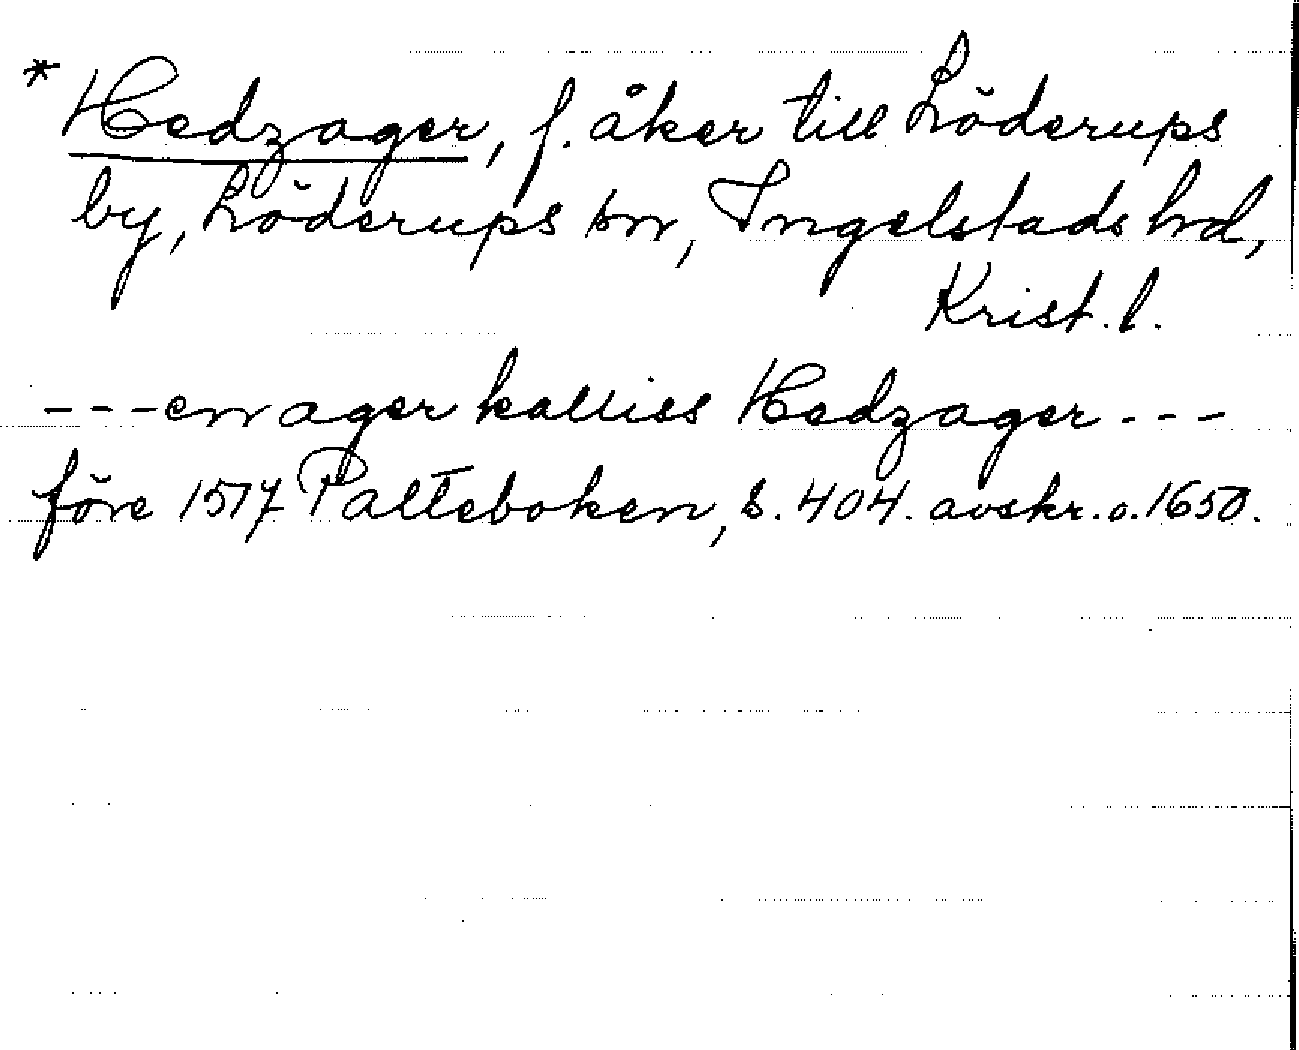 * Hedzager, f. åker till Löderups
by, Löderups sn, Ingelstads hd,
Krist. l.
---en ager kallies Hedzager---
före 1517 Palteboken, s. 404. avskr. o. 1650.